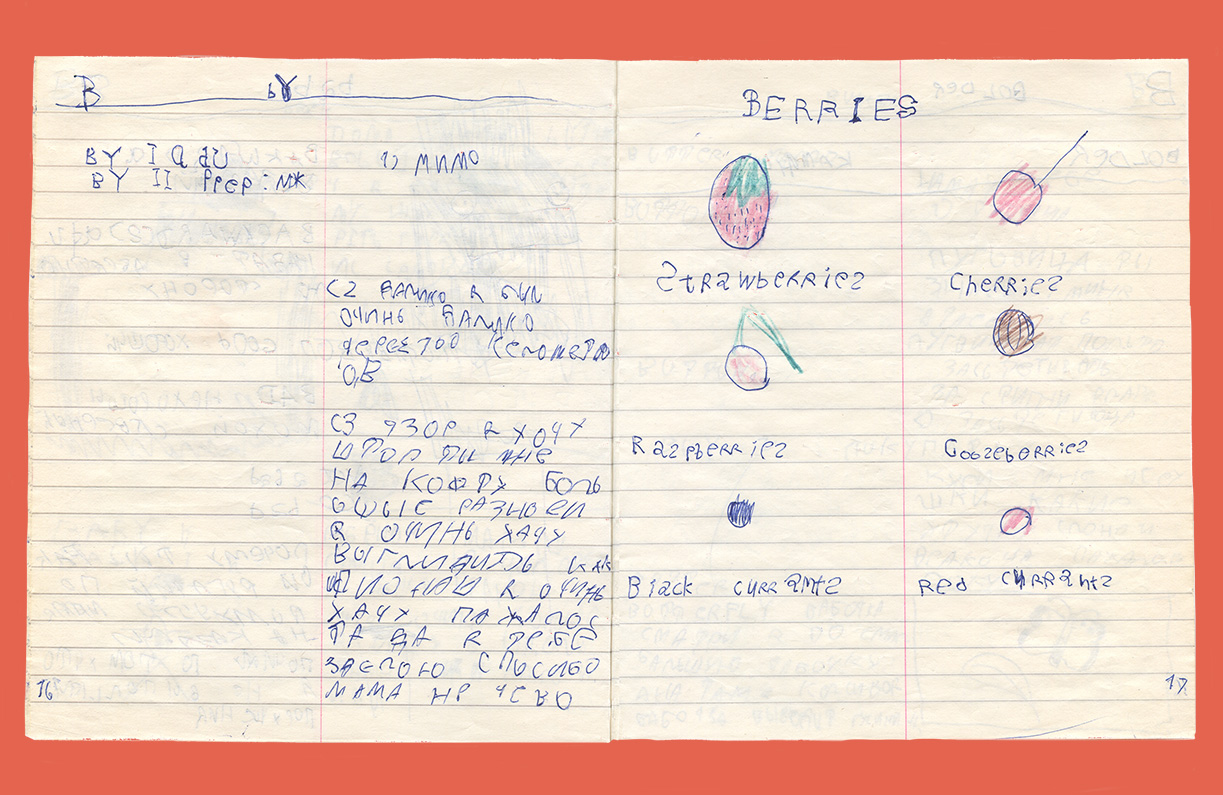 B bY
BY I a du 1) МИМО
BY II Prep:
С2 ЯАЛИКО Я БЫЛ
ОЧИНЬ ЯАЛИКО
ЧЕРЕЗ 700 КЕЛОМЕТРО
ОВ
С3 ЯЗОР Я ХОЧУ
ШТОП ТЫ МНЕ
НА КОФТУ БОЛЬ
ШЫЕ РАЗЫЕИ
Я ОЧИНЬ ХАЧУ
ВЫГЛИДИТЬ КАК
Я ОЧИНЬ
ХАЧУ ПАЖАЛОС
ТА ДА Я ТЕБЕ
ЗАСПОЮ СПОСИБО
МАМА НЕ ЧЕВО
16
BERRIES
Strawberries Cherries
Raspberries Goozeberries
Black currants Red currants
17